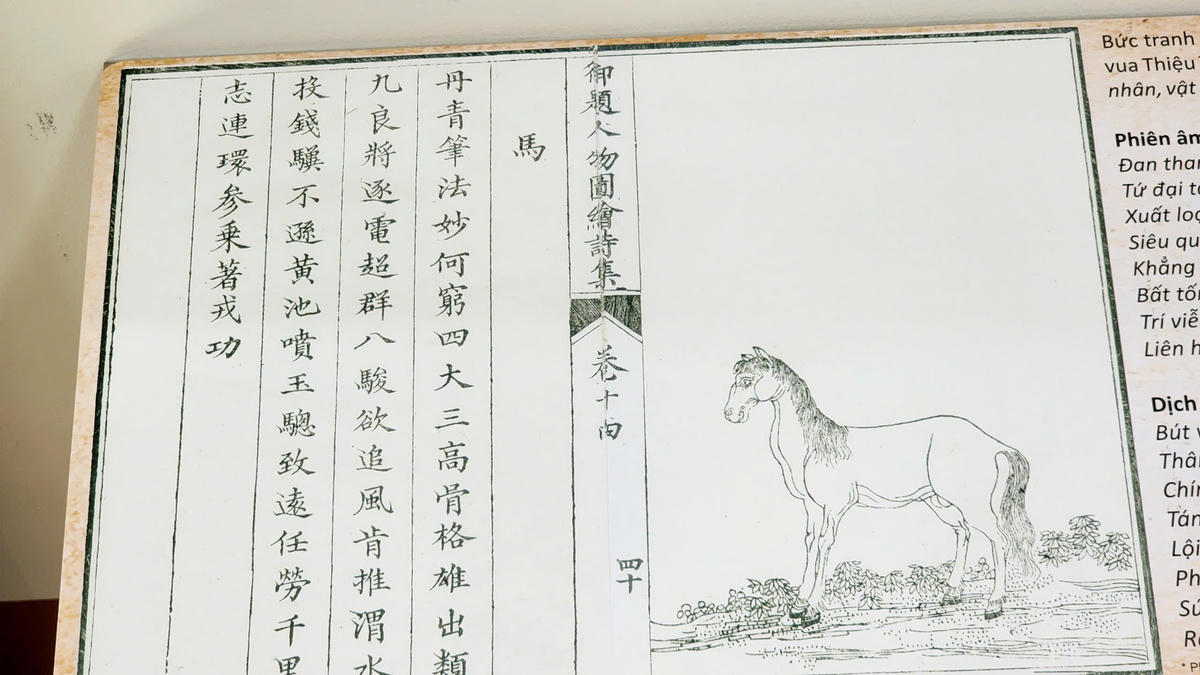 御題人物圖繪詩集
卷十
四十
馬
丹青筆法妙何窮四大三高骨格雄出類
九良將逐電超群八駿欲追風肯推渭水
投錢驥不遜黃池噴玉驄致遠任勞千里
志連環參乘著戎功
Bức tranh
vua Thiệu
nhân, vật
Phiên âm
Đan
Tứ đại
Xuất
Siêu
Khẳng
Bất
Trí
Liên
Dịch
Bút